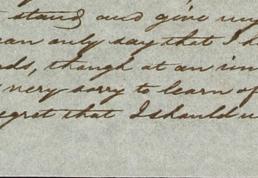 stand and give my
can only say that I h
ds, though at an in
very sorry to learn of
egret that I should u